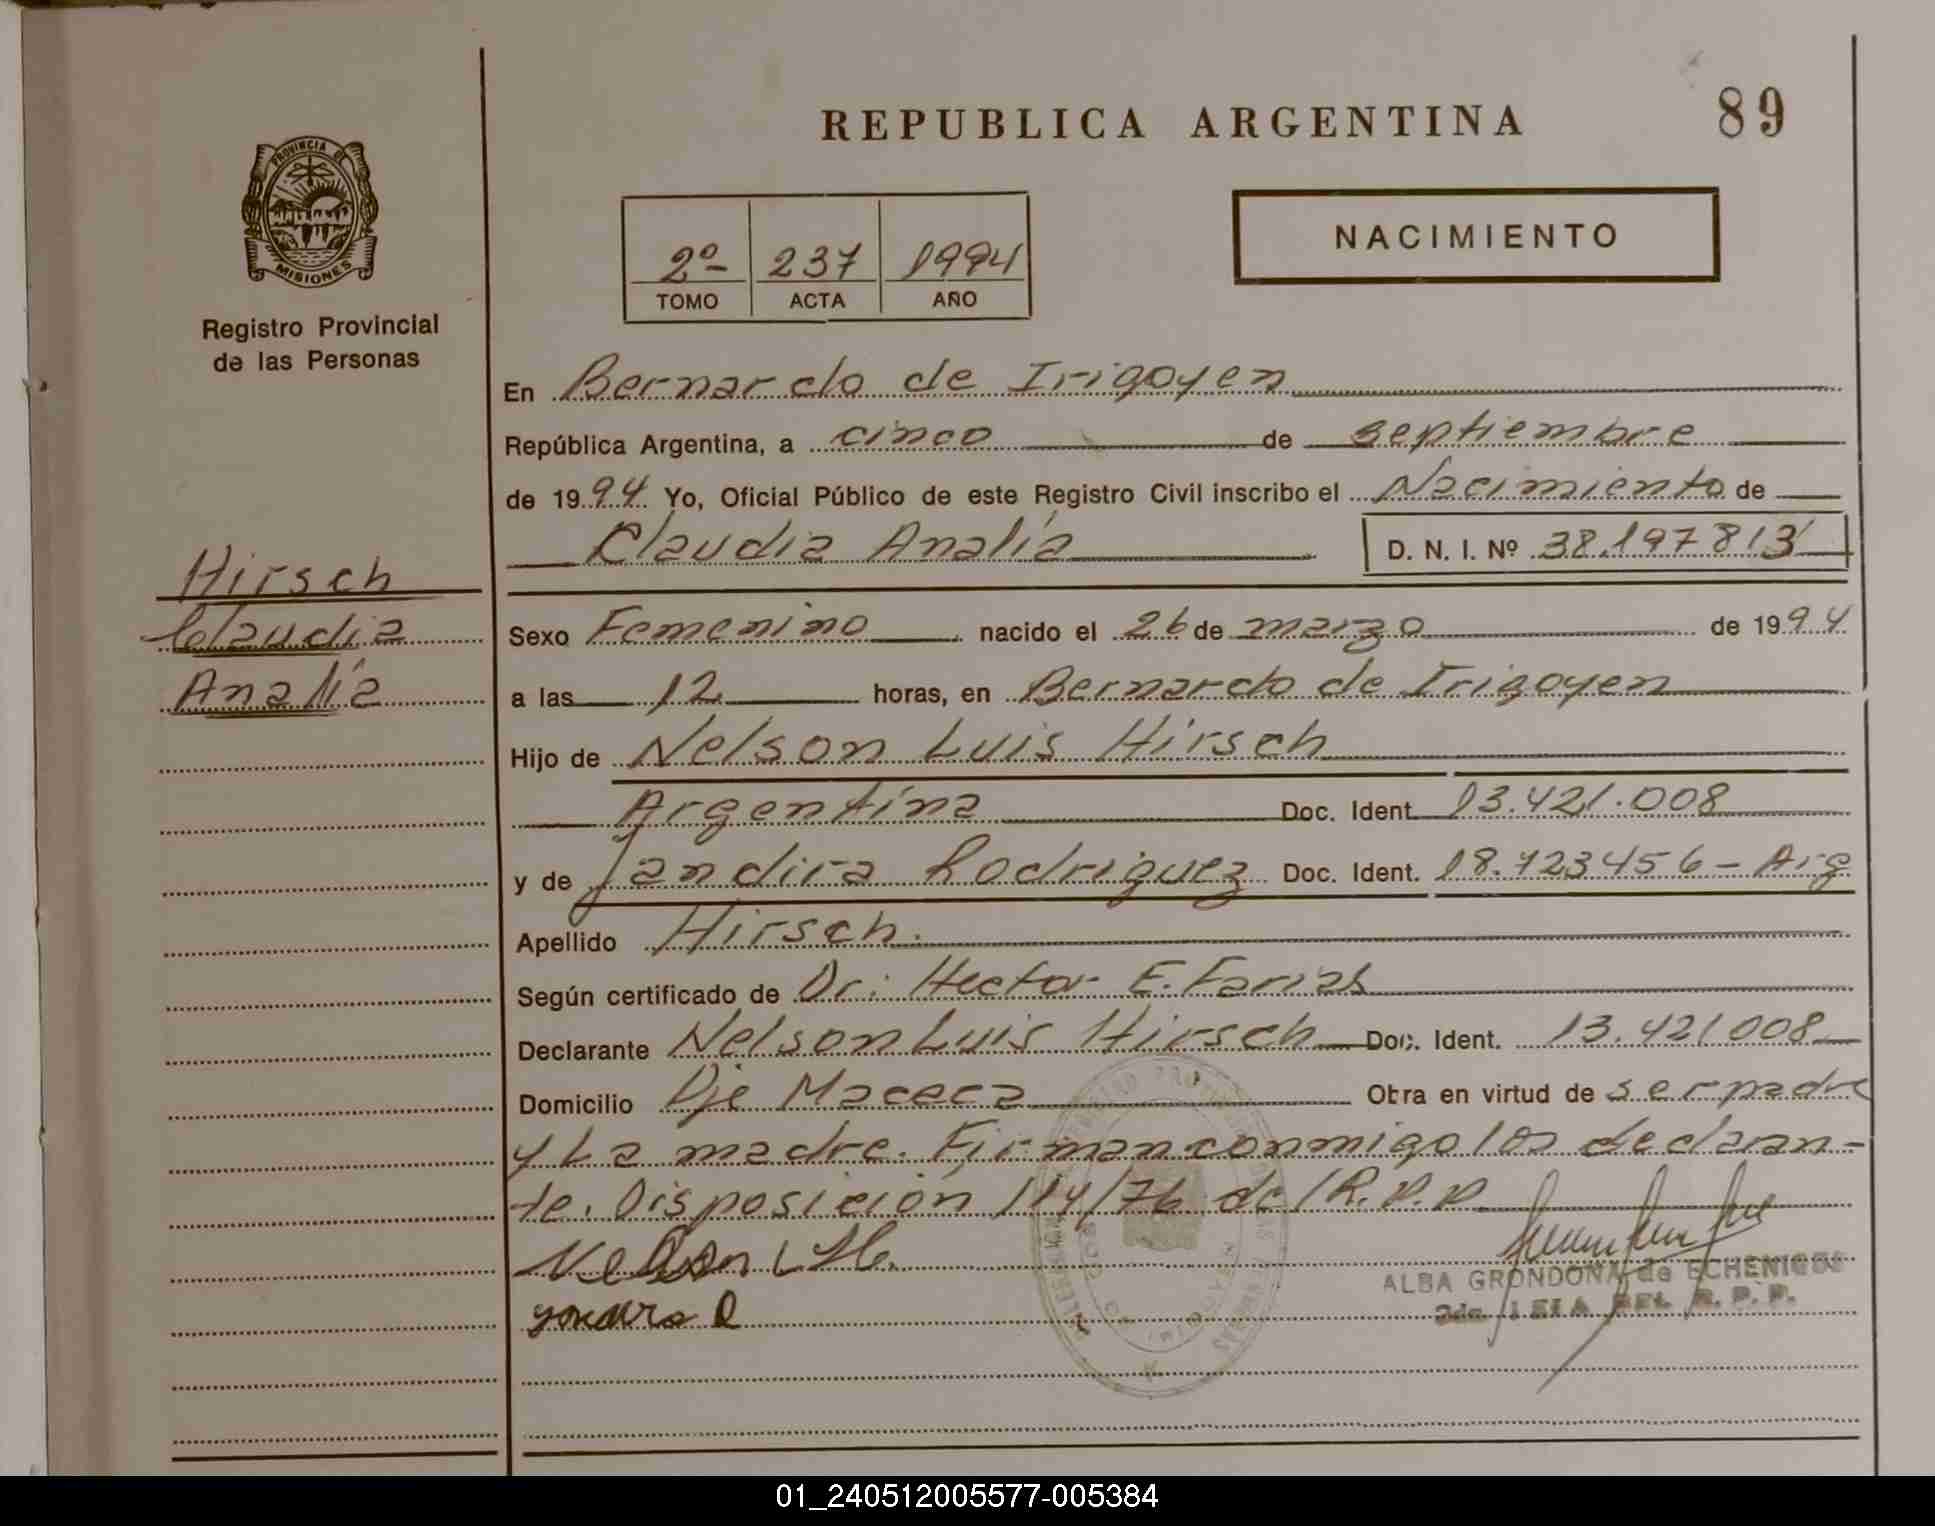 REPUBLICA ARGENTINA
89
PROVINCIA DE
MISIONES
Registro Provincial
de las Personas
2º 237 1994
TOMO ACTA AÑO
NACIMIENTO
Hirsch
Claudia
Analía
En Bernardo de Irigoyen
República Argentina, a cinco de septiembre
de 1994 Yo, Oficial Público de este Registro Civil inscribo el Nacimiento de
Claudia Analía D. N. I. Nº 38.197813
Sexo Femenino nacido el 26 de marzo de 1994
a las 12 horas, en Bernardo de Irigoyen
Hijo de Nelson Luis Hirsch
Argentina Doc. Ident. 13.421.008
y de Jandira Rodriguez Doc. Ident. 18.723456 - Arg
Apellido Hirsch.
Según certificado de Dr: Hector E. Farias
Declarante Nelson Luis Hirsch Doc. Ident. 13.421008
Domicilio Pje Maceca Obra en virtud de ser padre
y La madre. Firman conmigo los declaran-
te. Disposición 114/76 del R.P.P.
Nelson L H.
ALBA GRONDONA de ECHENIQUE
DEL R. P. P.
01_240512005577-005384